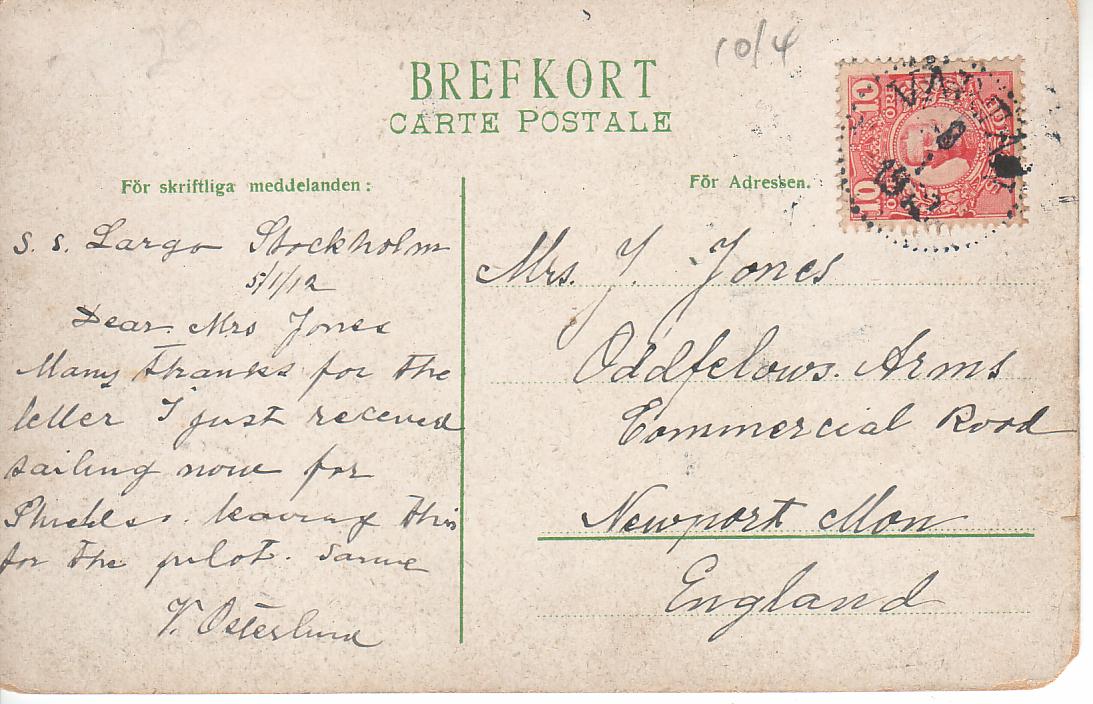 10/4
BREFKORT
CARTE POSTALE
För skriftliga meddelanden:
För Adressen.
10 10
ÖRE
VAXHOLM
s. s. Largo Stockholm
5/1/12
Dear Mrs Jones
Many thanks for the
letter I just received
sailing now for
Shields. leaving this
for the pilot. same
V. Österlund
Mrs. J. Jones
Oddfelows. Arms
Commercial Road
Newport Mon
England